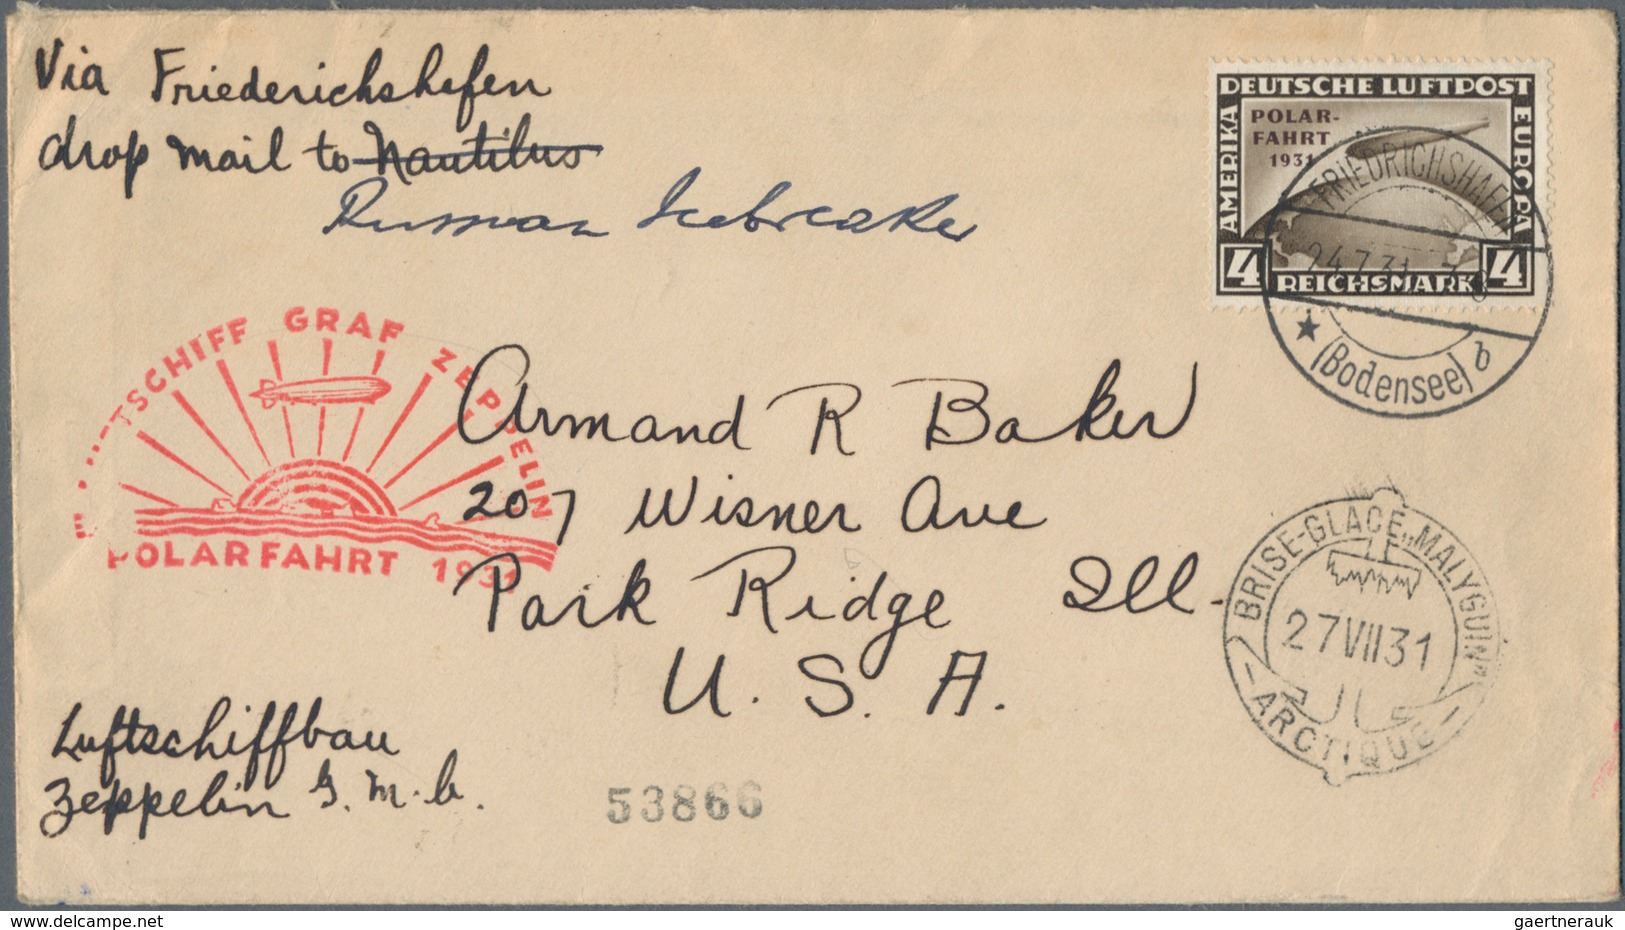 Via Friederichshafen
drop mail to Nautilus
Russian Icebreaker
DEUTSCHE LUFTPOST
AMERIKA
EUROPA
POLAR-
FAHRT
1931
4 REICHSMARK 4
FRIEDRICHSHAFEN
24.7.31
(Bodensee) b
LUFTSCHIFF GRAF ZEPPELIN
POLARFAHRT 1931
Armand R Baker
207 Wisner Ave
Park Ridge Ill.
U. S. A.
BRISE-GLACE „MALYGUIN“
27 VII 31
ARCTIQUE
Luftschiffbau
Zeppelin G. m. b.
53866
delcampe.net
gaertnerauk